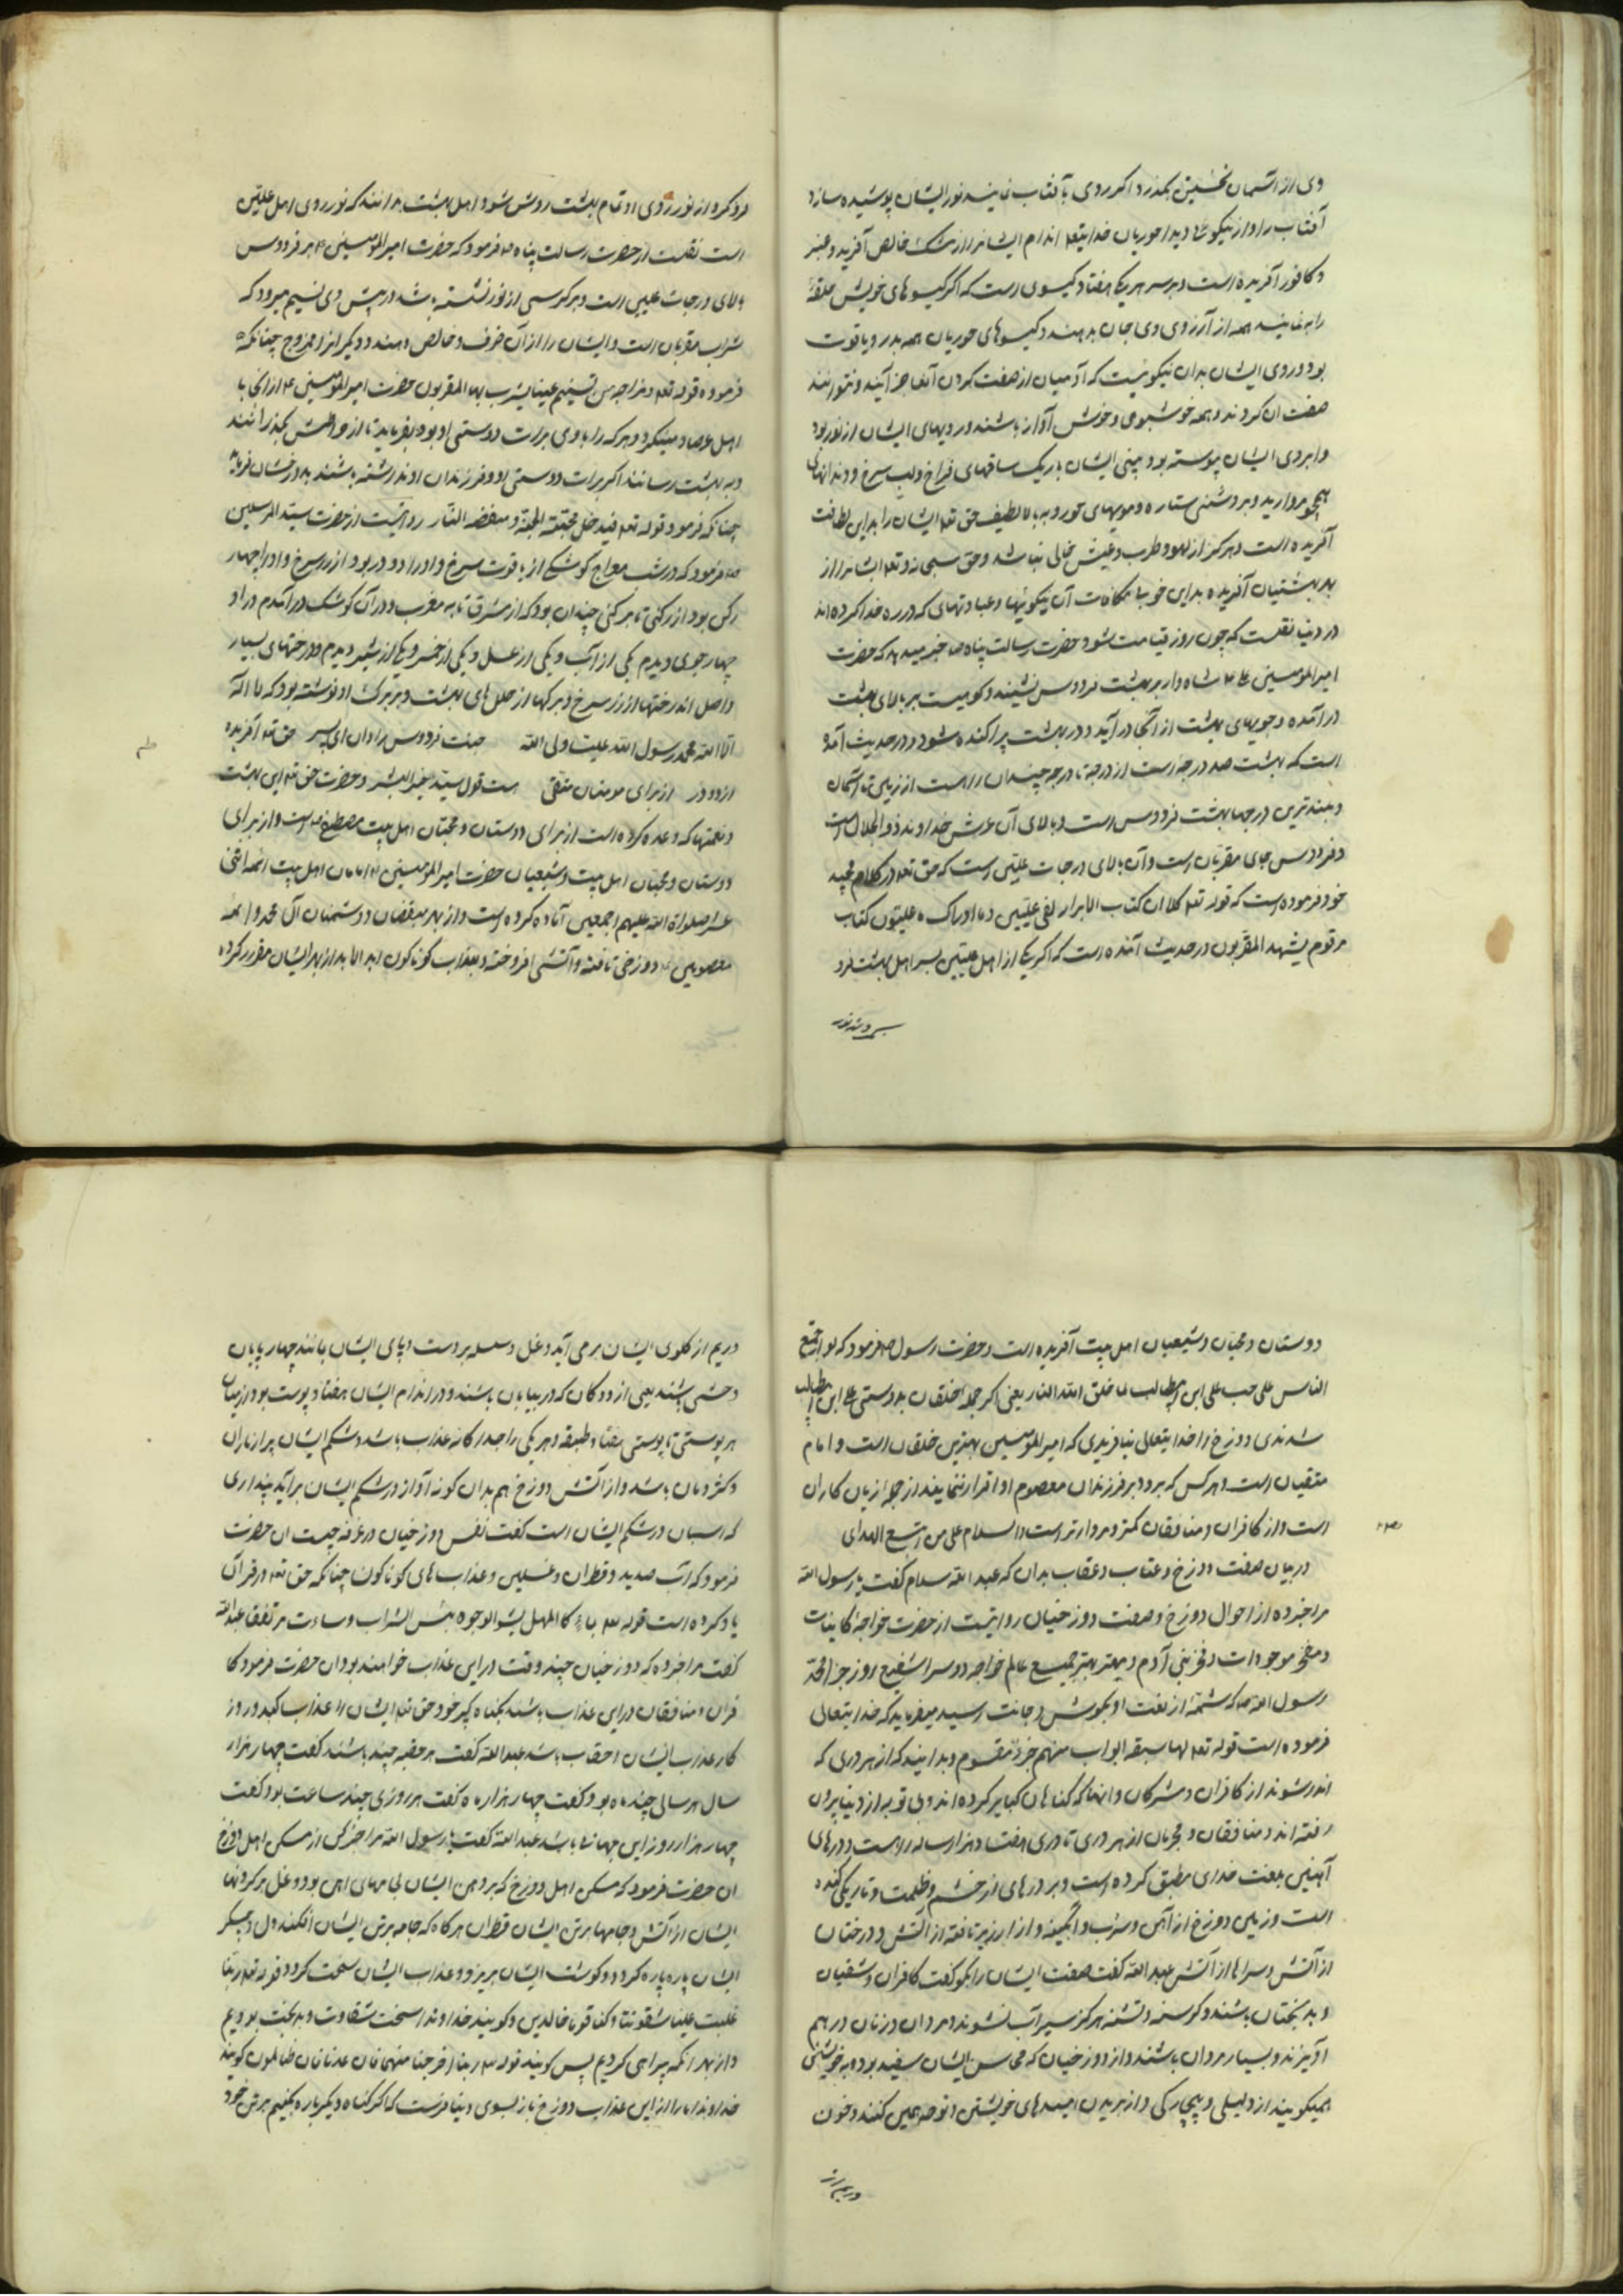 وی از آسمان نخستین بگذرد اگر روی بآفتاب نمایند نور ایشان پوشیده سازد
آفتاب را و از نیکوئی دیدار حوریان خدایتعه اندام ایشانرا از مشک خالص آفرید و عنبر
و کافور آفریده است و بر سر هر یک هفتاد کیسوی است که اگر کیسوهای خویش حلقهٔ
را بنمایند همه از آرزوی وی جان بدهند و کیسوهای حوریان همه بدر و یاقوت
بود و روی ایشان بدان نیکوئیست که آدمیان از صفت کردن آنها عاجز آیند و نتوانند
صفت ان کردند و همه خوشبوی و خوش آواز باشند و رویهای ایشان از نور بود
و ابروی ایشان پیوسته بود بینی ایشان باریک ساقهای فراخ و لب سرخ و دندانهای
همچو مروارید و بروشنی ستاره و مویهای حور و به بالا لطیف حق تعه ایشان را بدین لطافت
آفریده است و هرکز از لهو و طرب و عیش خالی نباشند و حق سبحانه و تعه ایشانرا از
بهر بهشتیان آفریده بدین خوبی بمکافات آن نیکوئیها و عبادتهای که در ره خدا کرده اند
در دنیا نقلست که چون روز قیامت شود حضرت رسالت پناه ص خبر میدهد که حضرت
امیرالمومنین علی ع شاه وار بر بهشت فردوس نشیند و کوهیست بر بالای بهشت
درآمده و جویهای بهشت از آنجا درآید و در بهشت پراکنده شود و در حدیث آمده
است که بهشت صد درجه است از درجه تا درجه چندان راه است از زمین تا آسمان
و بلندترین درجها بهشت فردوس است و بالای آن عرش خداوند ذوالجلال است
و فردوس جای مقربان است و آن بالای درجات علیین است که حق تعه در کلام مجید
خود فرموده است که قوله تعه کلا ان کتاب الابرار لفی علیین و ما ادراک ما علیون کتاب
مرقوم یشهد المقربون در حدیث آمده است که اگر یکی از اهل علیین بسر اهل بهشت فرو
فرو کرد از نور روی او تمام بهشت روشن شود اهل بهشت بدانند که نور روی اهل علیین
است نقلست از حضرت رسالت پناه ص فرمود که حضرت امیرالمومنین ع بر فردوس
بالای درجات علیین است و بر کرسی از نور نشسته باشد در پیش وی تسنیم میرود که
شراب مقربان است و ایشان را از آن صرف و خالص دهند و دیگرانرا ممزوج چنانکه
فرموده قوله تعه و مزاجه من تسنیم عینا یشرب بها المقربون حضرت امیرالمومنین ع از آنجا با
اهل عرصات مینگرد و هر که را با وی برات دوستی او بود بفرماید تا از صراطش بگذرانند
و به بهشت رسانند اگر برات دوستی او و فرزندان او نداشته باشند بدوزخشان فرماید
چنانکه فرمود قوله تعه فیدخل محبته الجنة و مبغضه النار روایتست از حضرت سید المرسلین
ص فرمود که در شب معراج کوشکی از یاقوت سرخ و او را دو در بود از زر سرخ و او را چهار
رکن بود از رکنی تا برکنی چندان بود که از مشرق تا به مغرب و در آن کوشک درآمدم در او
چهار جوی دیدم یکی از آب و یکی از عسل و یکی از خمر و یکی از شیر دیدم و درختهای بسیار
و اصل آندرختها از زر سرخ و برکها از حلل های بهشت و بر هر برک او نوشته بود که لا اله
الا الله محمد رسول الله علیا ولی الله جنت فردوس را دان ای پسر حق تعه آفریده
از دو در از برای مومنان متقی هست قول سید خیر البشر و حضرت حق تعه این بهشت
و نعمتها که وعده کرده است از برای دوستان و محبان اهل بیت مصطفی ص است و از برای
دوستان و محبان اهل بیت و شیعیان حضرت امیرالمومنین ع و امامان اهل بیت ائمه اثنی
عشر صلواة الله علیهم اجمعین آماده کرده است و از بهر مبغضان و دشمنان آل محمد و ائمه
معصومین ع دوزخی تافته و آتشی افروخته و بعذاب کوناکون ابد الاباد از بهر ایشان مقرر کرده
دوستان و محبان و شیعیان اهل بیت آفریده است و حضرت رسول ص فرمود که لو اجتمع
الناس علی حب علی ابن ابیطالب لما خلق الله النار یعنی اگر جمله خلقان بدوستی علی ابن ابیطالب
شدندی دوزخ را خدایتعالی نیافریدی که امیرالمومنین بهترین خلقان است و امام
متقیان است و هر کس که برو و بر فرزندان معصوم او اقرار ننمایند از جمله زیان کاران
است و از کافران و منافقان کمتر و مردارتر است والسلام علی من اتبع الهدی
در بیان صفت دوزخ و عتاب و عقاب بدان که عبد الله سلام گفت یا رسول الله
مرا خبر ده از احوال دوزخ و صفت دوزخیان روایتست از حضرت خواجه کاینات
و مفخر موجودات و فخر بنی آدم و مهتر بهتر جمیع عالم خواجه دو سرا شفیع روز جزا محمد
رسول الله ص که شمهٔ از نعت او بکوش و جانت رسید میفرماید که خدایتعالی
فرموده است قوله تعه لها سبعة ابواب منهم جزء مقسوم و بدانید که از هر دری که
اندر شوند از کافران و مشرکان و آنهائی که کناهان کبایر کرده اند و بی توبه از دنیا بیرون
رفته اند و منافقان و مجرمان از هر دری تا دری هفتاد هزار ساله راه است و درهای
آهنین بلعنت خدای مطبق کرده است و بر درهای از خشم و ظلمت و تاریکی کنده
است و زمین دوزخ از آهن و سرب و آبگینه و از ارزیز تافته از آتش و درختان
از آتش و سراها از آتش عبد الله گفت صفت ایشان را بکو گفت کافران و شقیان
و بدبختان باشند و کرسنه و تشنه هرکز سیر آب نشوند و مردان و زنان در هم
آویزند و بسیار مردان باشند و از دوزخیان که محاسن ایشان سفید بود و به خویشتن
همیکویند از ذلیلی و بیچارکی و از بریدن امیدهای خویشتن و نوحه همی کنند و خون
و ریم از کلوی ایشان برمی آید و غل و سلسله بر دست و پای ایشان مانند چهارپایان
وحشی باشند یعنی از ددکان که در بیابان باشند و در اندام ایشان هفتاد پوست بود از میان
هر پوستی تا پوستی هفتاد طبقه و هر یکی را جداکانه عذاب باشد و شکم ایشان پر از ماران
و کژدمان باشد و از آتش دوزخ هم بدان کونه آواز در شکم ایشان برآید پنداری
که اسبان در شکم ایشان است گفت نفس دوزخیان در غرفه چیست ان حضرت
فرمود که آب صدید و قطران و غسلین و عذاب های کوناکون چنانکه حق تعه در قرآن
یاد کرده است قوله تعه بماء کالمهل یشوی الوجوه بئس الشراب و ساءت مرتفقا عبد الله
گفت مرا خبر ده که دوزخیان چند وقت در این عذاب خواهند بود ان حضرت فرمود کا
فران و منافقان در این عذاب باشند بکناه کبیر خود حق تعه ایشان را عذاب کند و روز
کار عذاب ایشان احقاب باشد عبد الله گفت هر حقبه چند باشند گفت چهار هزار
سال هر سالی چند ماه بود گفت چهار هزار ماه گفت هر روزی چند ساعت بود گفت
چهار هزار روز این جهان باشد عبد الله گفت یا رسول الله مرا خبر کن از مسکن اهل دوزخ
ان حضرت فرمود که مسکن اهل دوزخ که بر دهن ایشان لجامهای اهن بود و غل بر کردنها
ایشان از آتش و جامها برتن ایشان قطران هرکاه که جامه برتن ایشان افکنند دل و جگر
ایشان پاره پاره کردد و کوشت ایشان بریزد و عذاب ایشان سخت کردد قوله تعه ربنا
غلبت علینا شقوتنا و کنا قوما خالدین و کویند خداوندا سخت شقاوت و بدبخت بودیم
و از بهر انکه بیراهی کردیم پس کویند قوله تعه ربنا اخرجنا منها فان عدنا فان ظالمون کویند
خداوندا ما را از این عذاب دوزخ باز بسوی دنیا فرست که اگر کناه دیگر باره بکنیم برتن خود